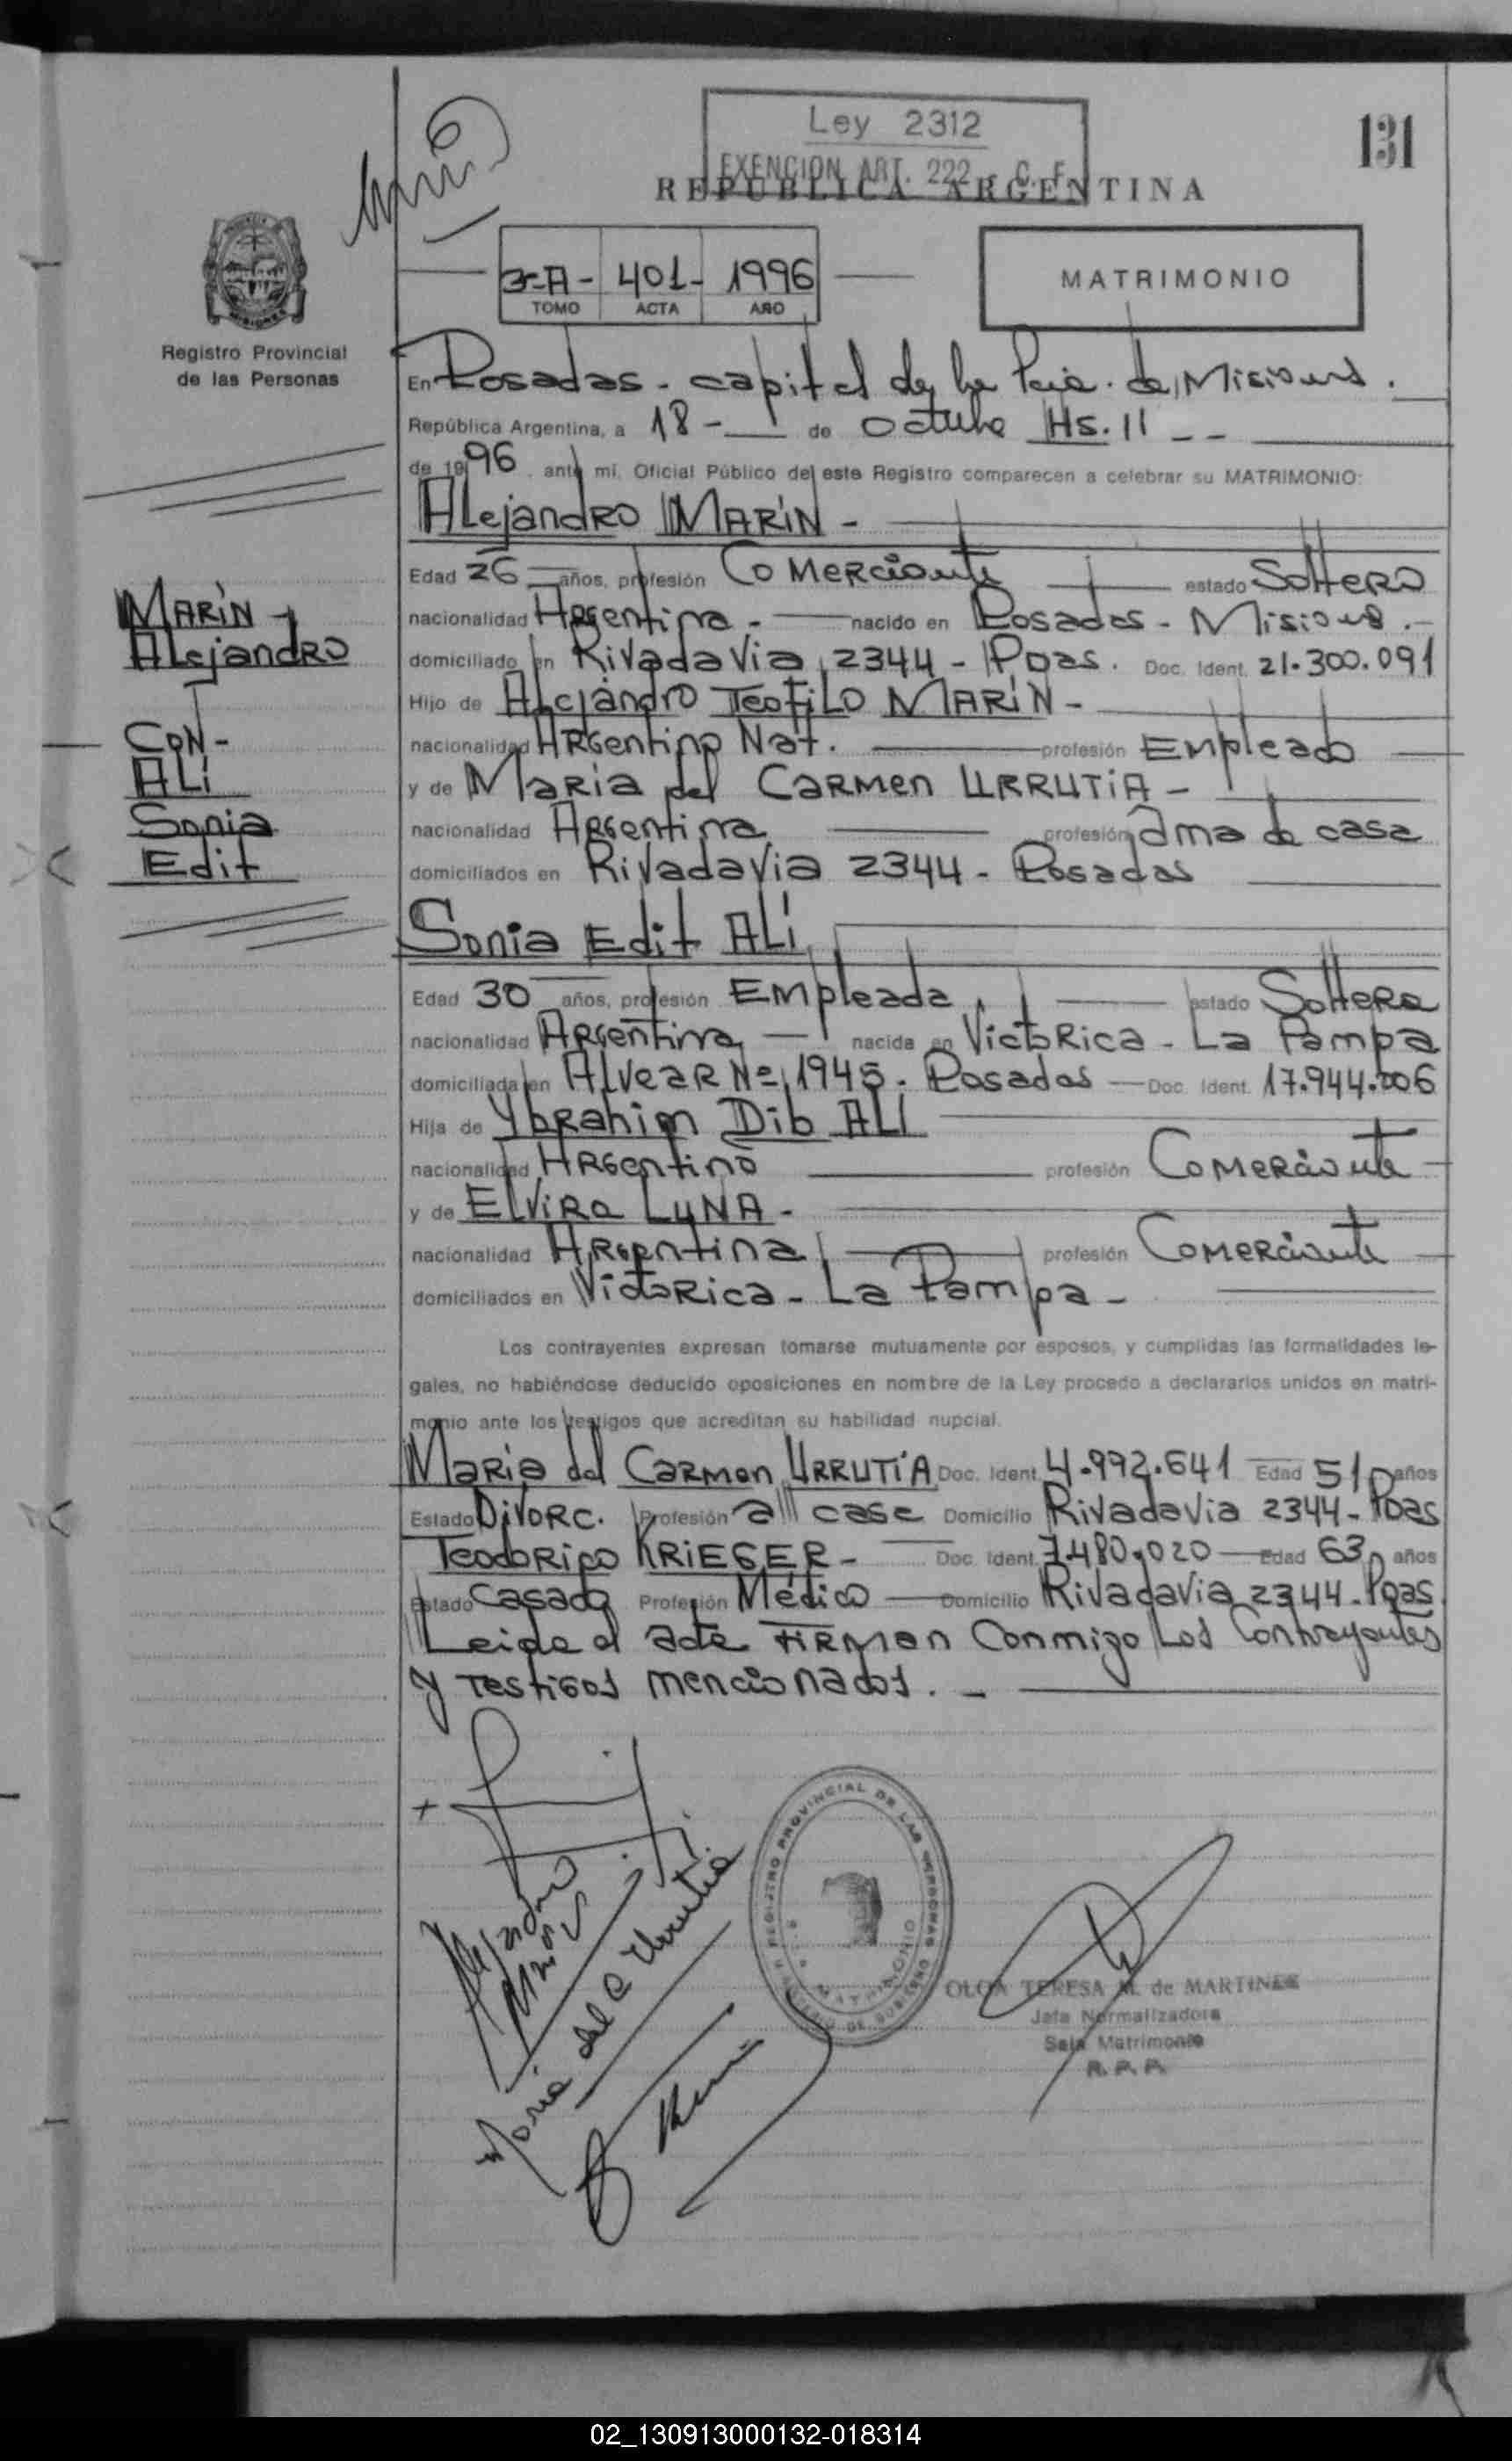 Ley 2312
EXENCION ART. 222 C. F.
131
REPUBLICA ARGENTINA
3-A- 401- 1996
TOMO ACTA AÑO
MATRIMONIO
Registro Provincial
de las Personas
En Posadas - capital de la Pcia. de Misiones.
República Argentina, a 18 - de octubre Hs. 11 - -
de 1996, ante mí, Oficial Público del este Registro comparecen a celebrar su MATRIMONIO:
Alejandro MARÍN -
Edad 26 años, profesión Comerciante estado Soltero
nacionalidad Argentina. - nacido en Posadas - Misiones. -
domiciliado en Rivadavia 2344 - Poas. Doc. Ident. 21.300.091
Hijo de Alejandro Teofilo MARÍN -
nacionalidad Argentino Nat. profesión Empleado
y de Maria del Carmen URRUTIA -
nacionalidad Argentina profesión ama de casa
domiciliados en Rivadavia 2344 - Posadas
MARÍN
Alejandro
CON -
ALÍ
Sonia
Edit
Sonia Edit ALÍ
Edad 30 años, profesión Empleada estado Soltera
nacionalidad Argentina - nacida en Victorica - La Pampa
domiciliada en Alvear Nº 1945. Posadas - Doc. Ident. 17.944.006
Hija de Ybrahim Dib ALI
nacionalidad Argentino profesión Comerciante
y de Elvira LUNA -
nacionalidad Argentina profesión Comerciante
domiciliados en Victorica - La Pampa -
Los contrayentes expresan tomarse mutuamente por esposos, y cumplidas las formalidades le-
gales, no habiéndose deducido oposiciones en nombre de la Ley procedo a declararlos unidos en matri-
monio ante los testigos que acreditan su habilidad nupcial.
Maria del Carmen URRUTIA Doc. Ident. 4.992.641 Edad 51 años
Estado Divorc. Profesión a// case Domicilio Rivadavia 2344 - Poas
Teodorico KRIEGER - Doc. Ident. 7.480.020 - Edad 63 años
Estado Casado Profesión Médico - Domicilio Rivadavia 2344 - Poas.
Leida el acta firman conmigo los contrayentes
y testigos mencionados. -
Alejandro
Marín
Maria del C Urrutia
REGISTRO PROVINCIAL DE LAS PERSONAS
MATRIMONIO
OLGA TERESA M. de MARTINEZ
Jefa Normalizadora
Sala Matrimonio
R. P. P.
02_130913000132-018314